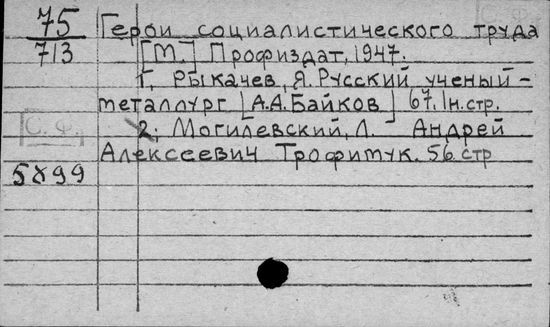 75
713
Герои социалистического труда
[М.] Профиздат, 1947.
1, Рыкачев, Я. Русский ученый-
металлург [А.А.Байков] 67.1н.стр.
[С.Ф.]
2; Могилевский, Л. Андрей
Алексеевич Трофимук. 56 стр
5899